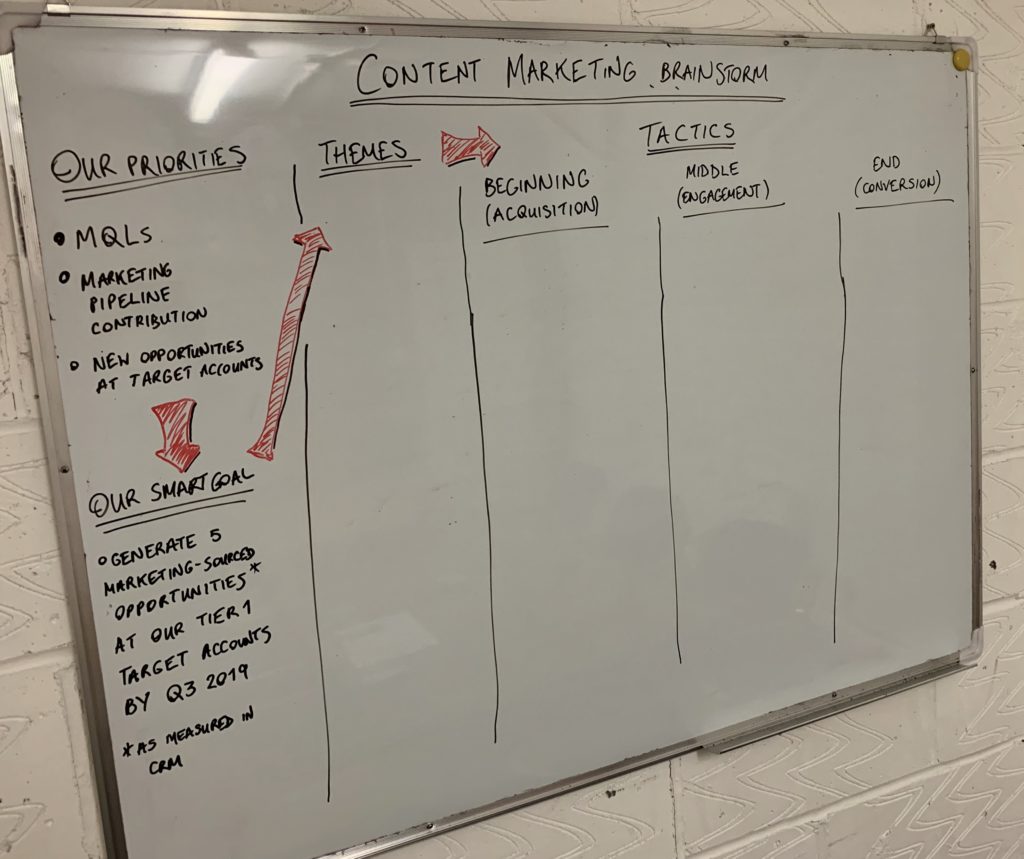 CONTENT MARKETING BRAINSTORM
OUR PRIORITIES
• MQLs
○ MARKETING
PIPELINE
CONTRIBUTION
○ NEW OPPORTUNITIES
AT TARGET ACCOUNTS
OUR SMART GOAL
○ GENERATE 5
MARKETING-SOURCED
OPPORTUNITIES*
AT OUR TIER 1
TARGET ACCOUNTS
BY Q3 2019
*AS MEASURED IN
CRM
THEMES
TACTICS
BEGINNING
(ACQUISITION)
MIDDLE
(ENGAGEMENT)
END
(CONVERSION)